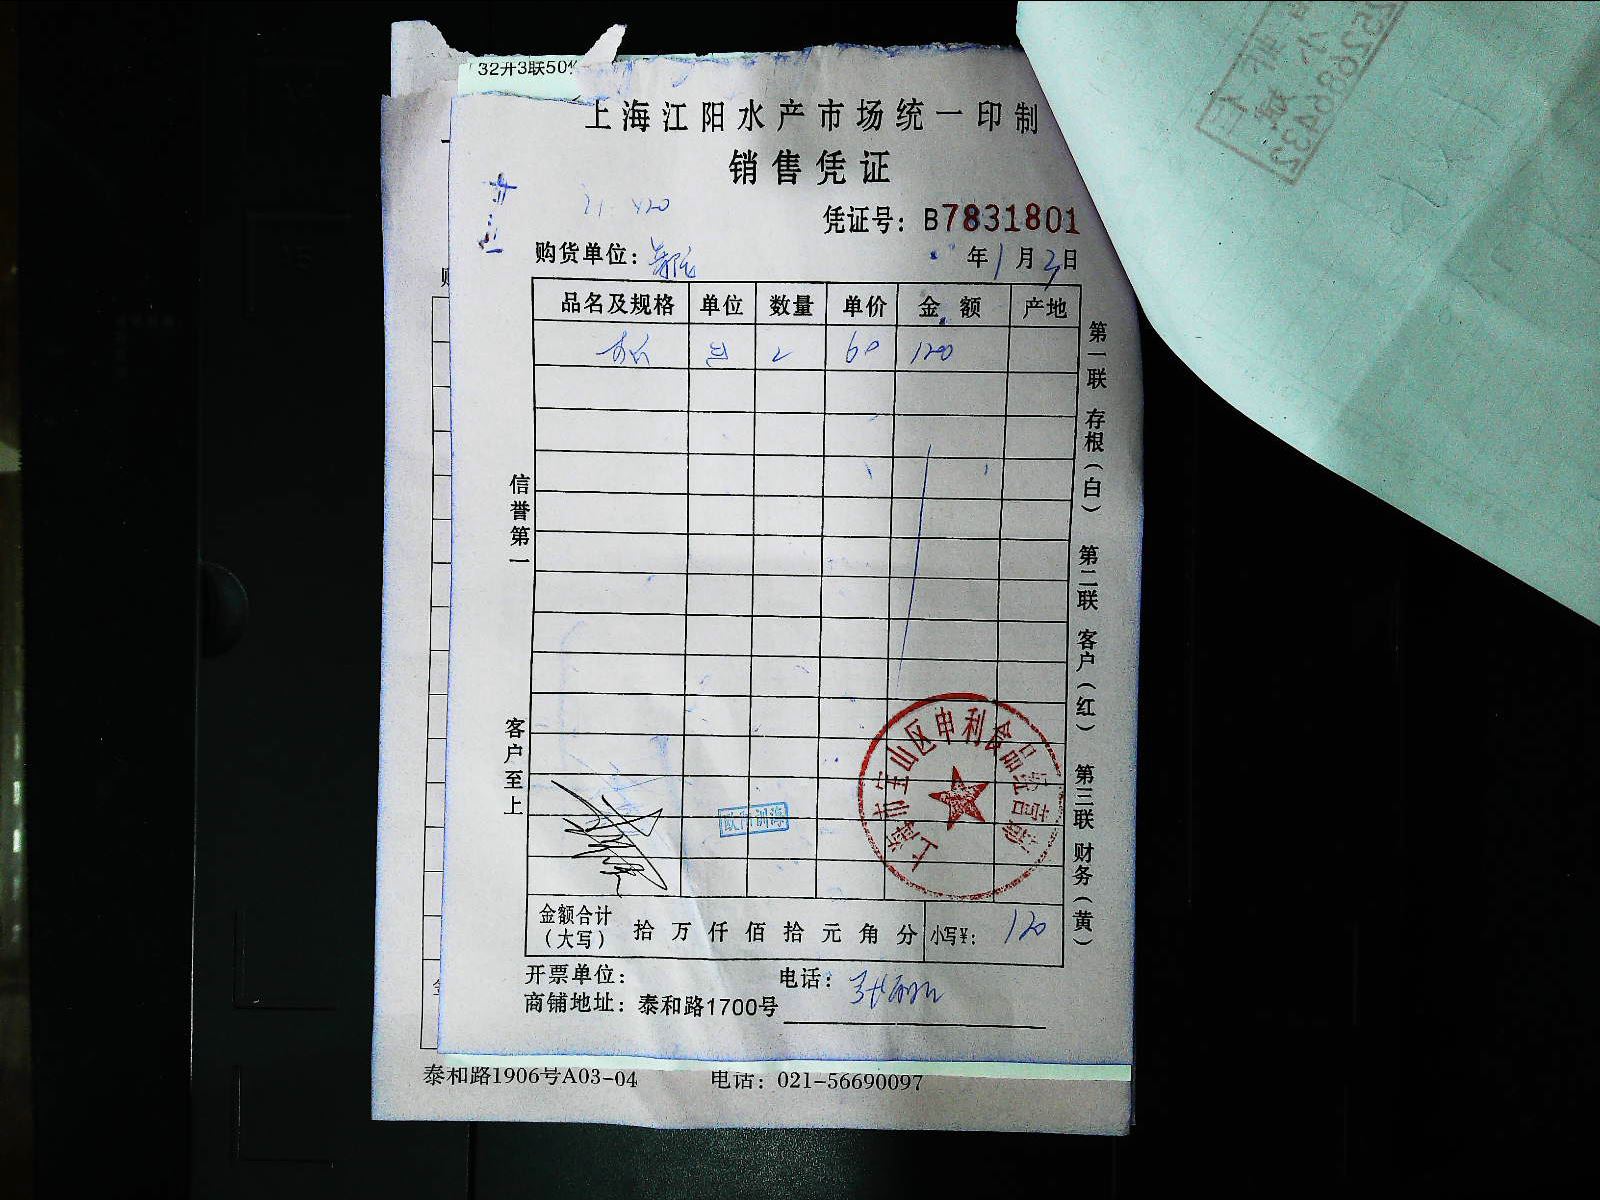 32开3联50份
上海江阳水产市场统一印制
销售凭证
凭证号：B7831801
购货单位：
年1月3日
品名及规格 单位 数量 单价 金额 产地
2 60 120
信誉第一
客户至上
第一联 存根（白） 第二联 客户（红） 第三联 财务（黄）
上海市宝山区申利食品经营部
金额合计（大写） 拾万仟佰拾元角分 小写¥： 120
开票单位： 电话：
商铺地址：泰和路1700号
泰和路1906号A03-04 电话：021-56690097